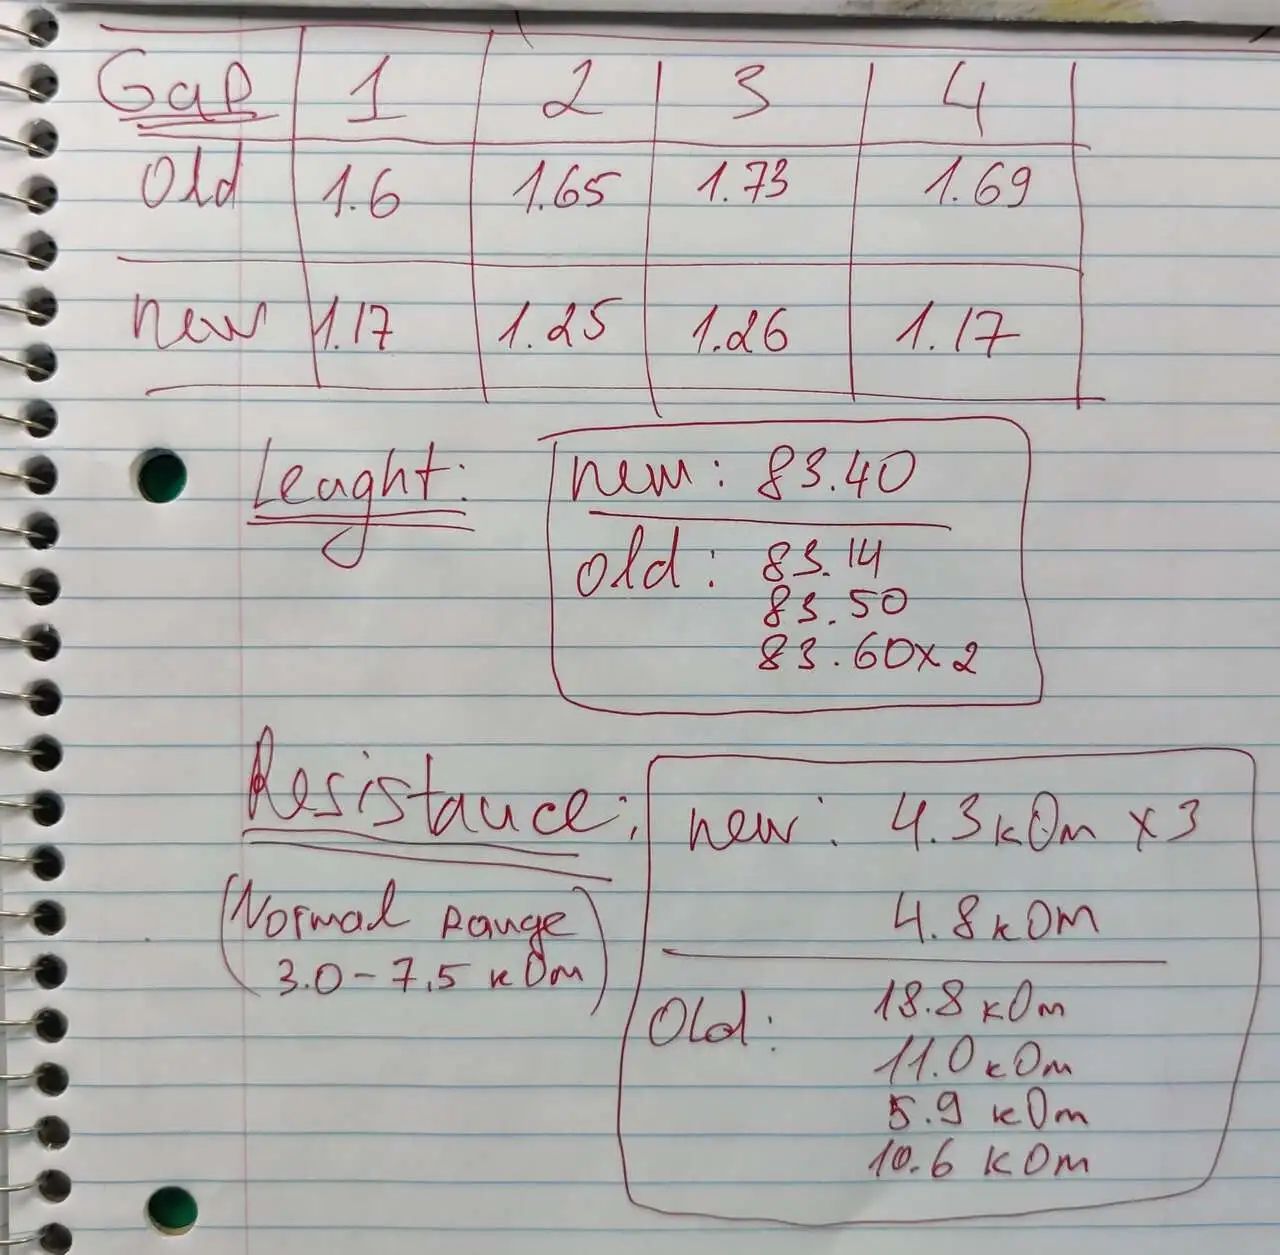 Gap 1 2 3 4
Old 1.6 1.65 1.73 1.69
new 1.17 1.25 1.26 1.17
Leaght: new: 83.40
old: 83.14
83.50
83.60x2
Resistance: new: 4.3 кОм x3
(Normal Range 4.8 кОм
3.0-7.5 кОм)
Old: 18.8 кОм
11.0 кОм
5.9 кОм
10.6 кОм